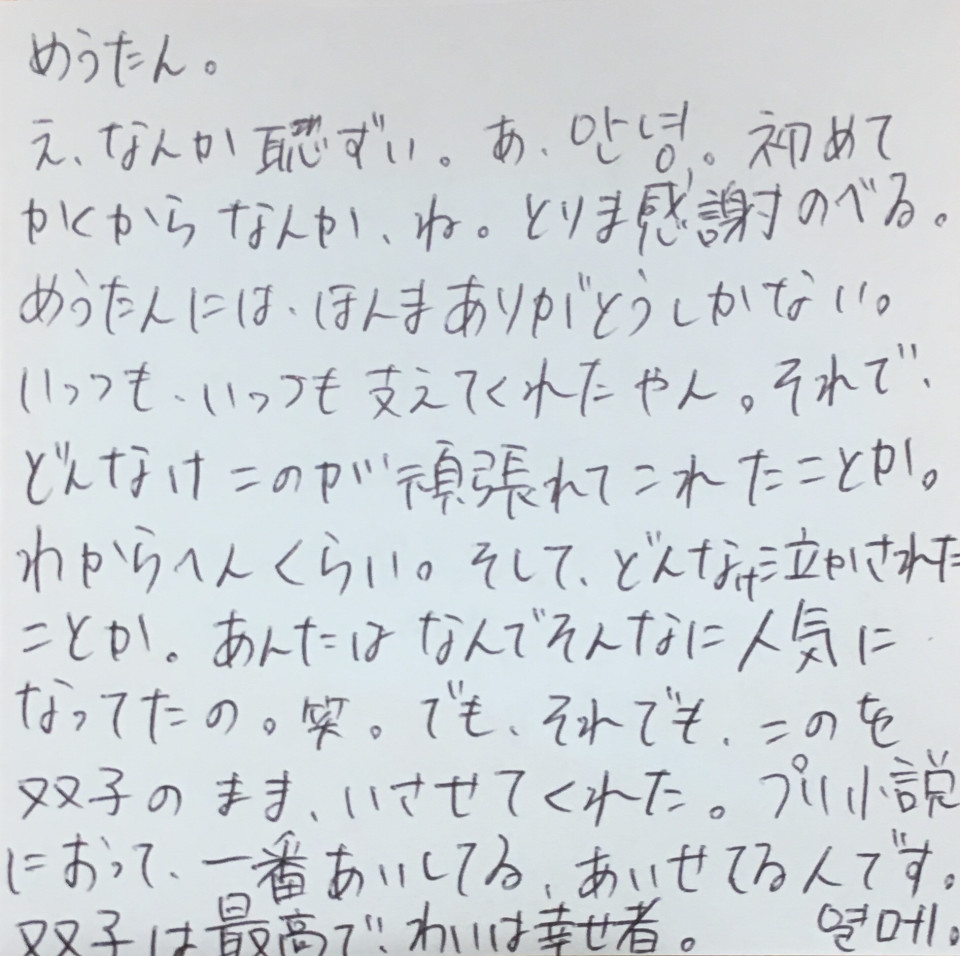 めうたん。
え、なんか恥ずい。あ、안녕。初めて
かくからなんか、ね。とりま感謝のべる。
めうたんには、ほんまありがとうしかない。
いっつも、いっつも支えてくれたやん。それで、
どんなけこのが頑張れてこれたことか。
わからへんくらい。そして、どんなけ泣かされた
ことか。あんたはなんでそんなに人気に
なってたの。笑。でも、それでも、このを
双子のまま、いさせてくれた。プリ小説
におって、一番あいしてる、あいせてる人です。
双子は最高で、わいは幸せ者。 열메。